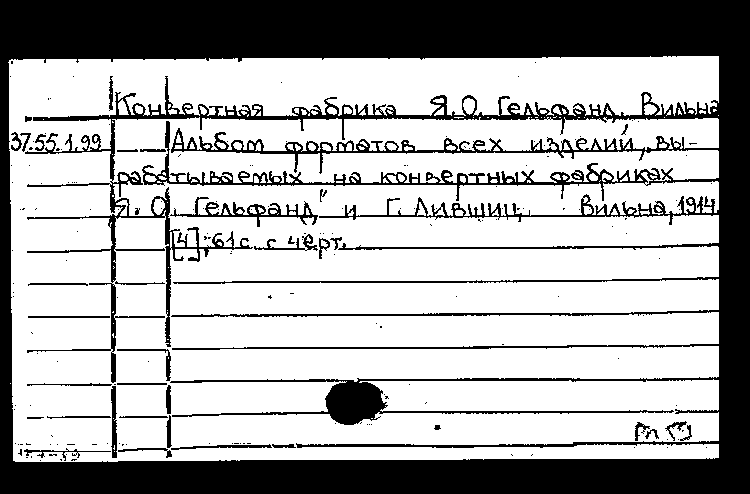 Конвертная фабрика Я.О. Гельфанд, Вильна
37.55.1.99 Альбом форматов всех изделий, вы-
рабатываемых на конвертных фабриках
Я. О. Гельфанд" и Г. Лившиц. Вильна, 1914.
[4], 61 с. с черт.